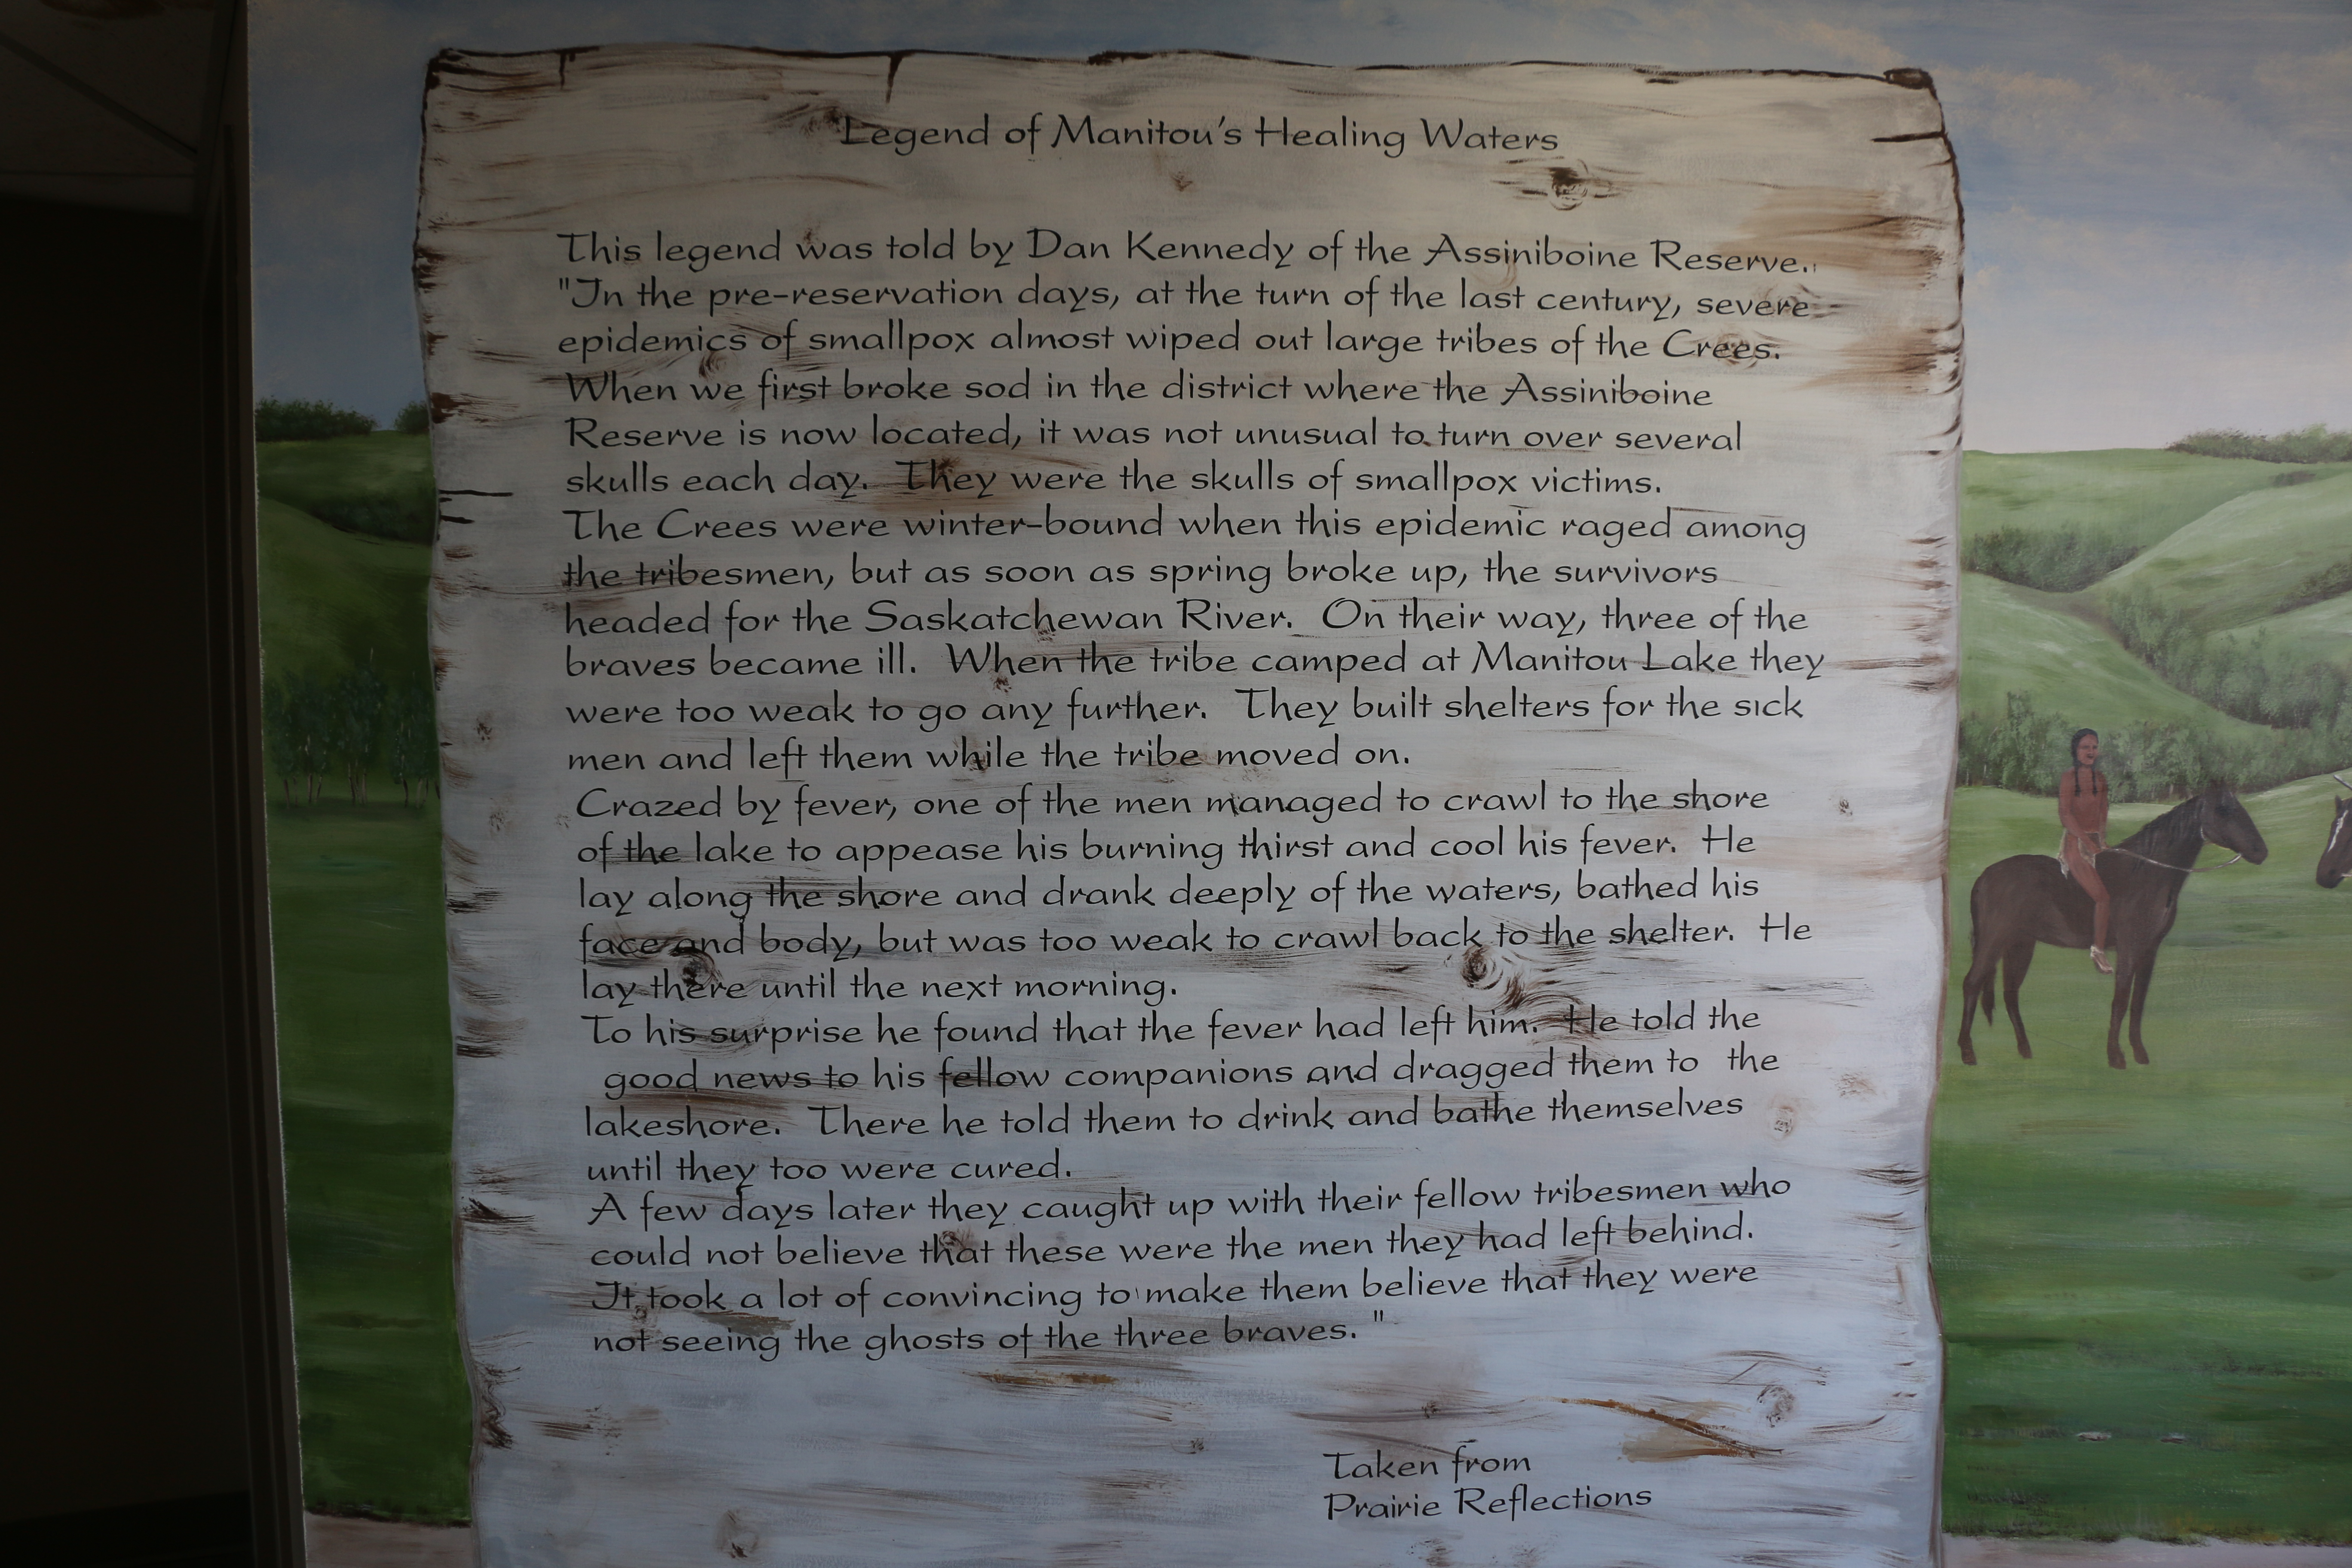 Legend of Manitou's Healing Waters
This legend was told by Dan Kennedy of the Assiniboine Reserve.
"In the pre-reservation days, at the turn of the last century, severe
epidemics of smallpox almost wiped out large tribes of the Crees.
When we first broke sod in the district where the Assiniboine
Reserve is now located, it was not unusual to turn over several
skulls each day. They were the skulls of smallpox victims.
The Crees were winter-bound when this epidemic raged among
the tribesmen, but as soon as spring broke up, the survivors
headed for the Saskatchewan River. On their way, three of the
braves became ill. When the tribe camped at Manitou Lake they
were too weak to go any further. They built shelters for the sick
men and left them while the tribe moved on.
Crazed by fever, one of the men managed to crawl to the shore
of the lake to appease his burning thirst and cool his fever. He
lay along the shore and drank deeply of the waters, bathed his
face and body, but was too weak to crawl back to the shelter. He
lay there until the next morning.
To his surprise he found that the fever had left him. He told the
good news to his fellow companions and dragged them to the
lakeshore. There he told them to drink and bathe themselves
until they too were cured.
A few days later they caught up with their fellow tribesmen who
could not believe that these were the men they had left behind.
It took a lot of convincing to make them believe that they were
not seeing the ghosts of the three braves. "
Taken from
Prairie Reflections